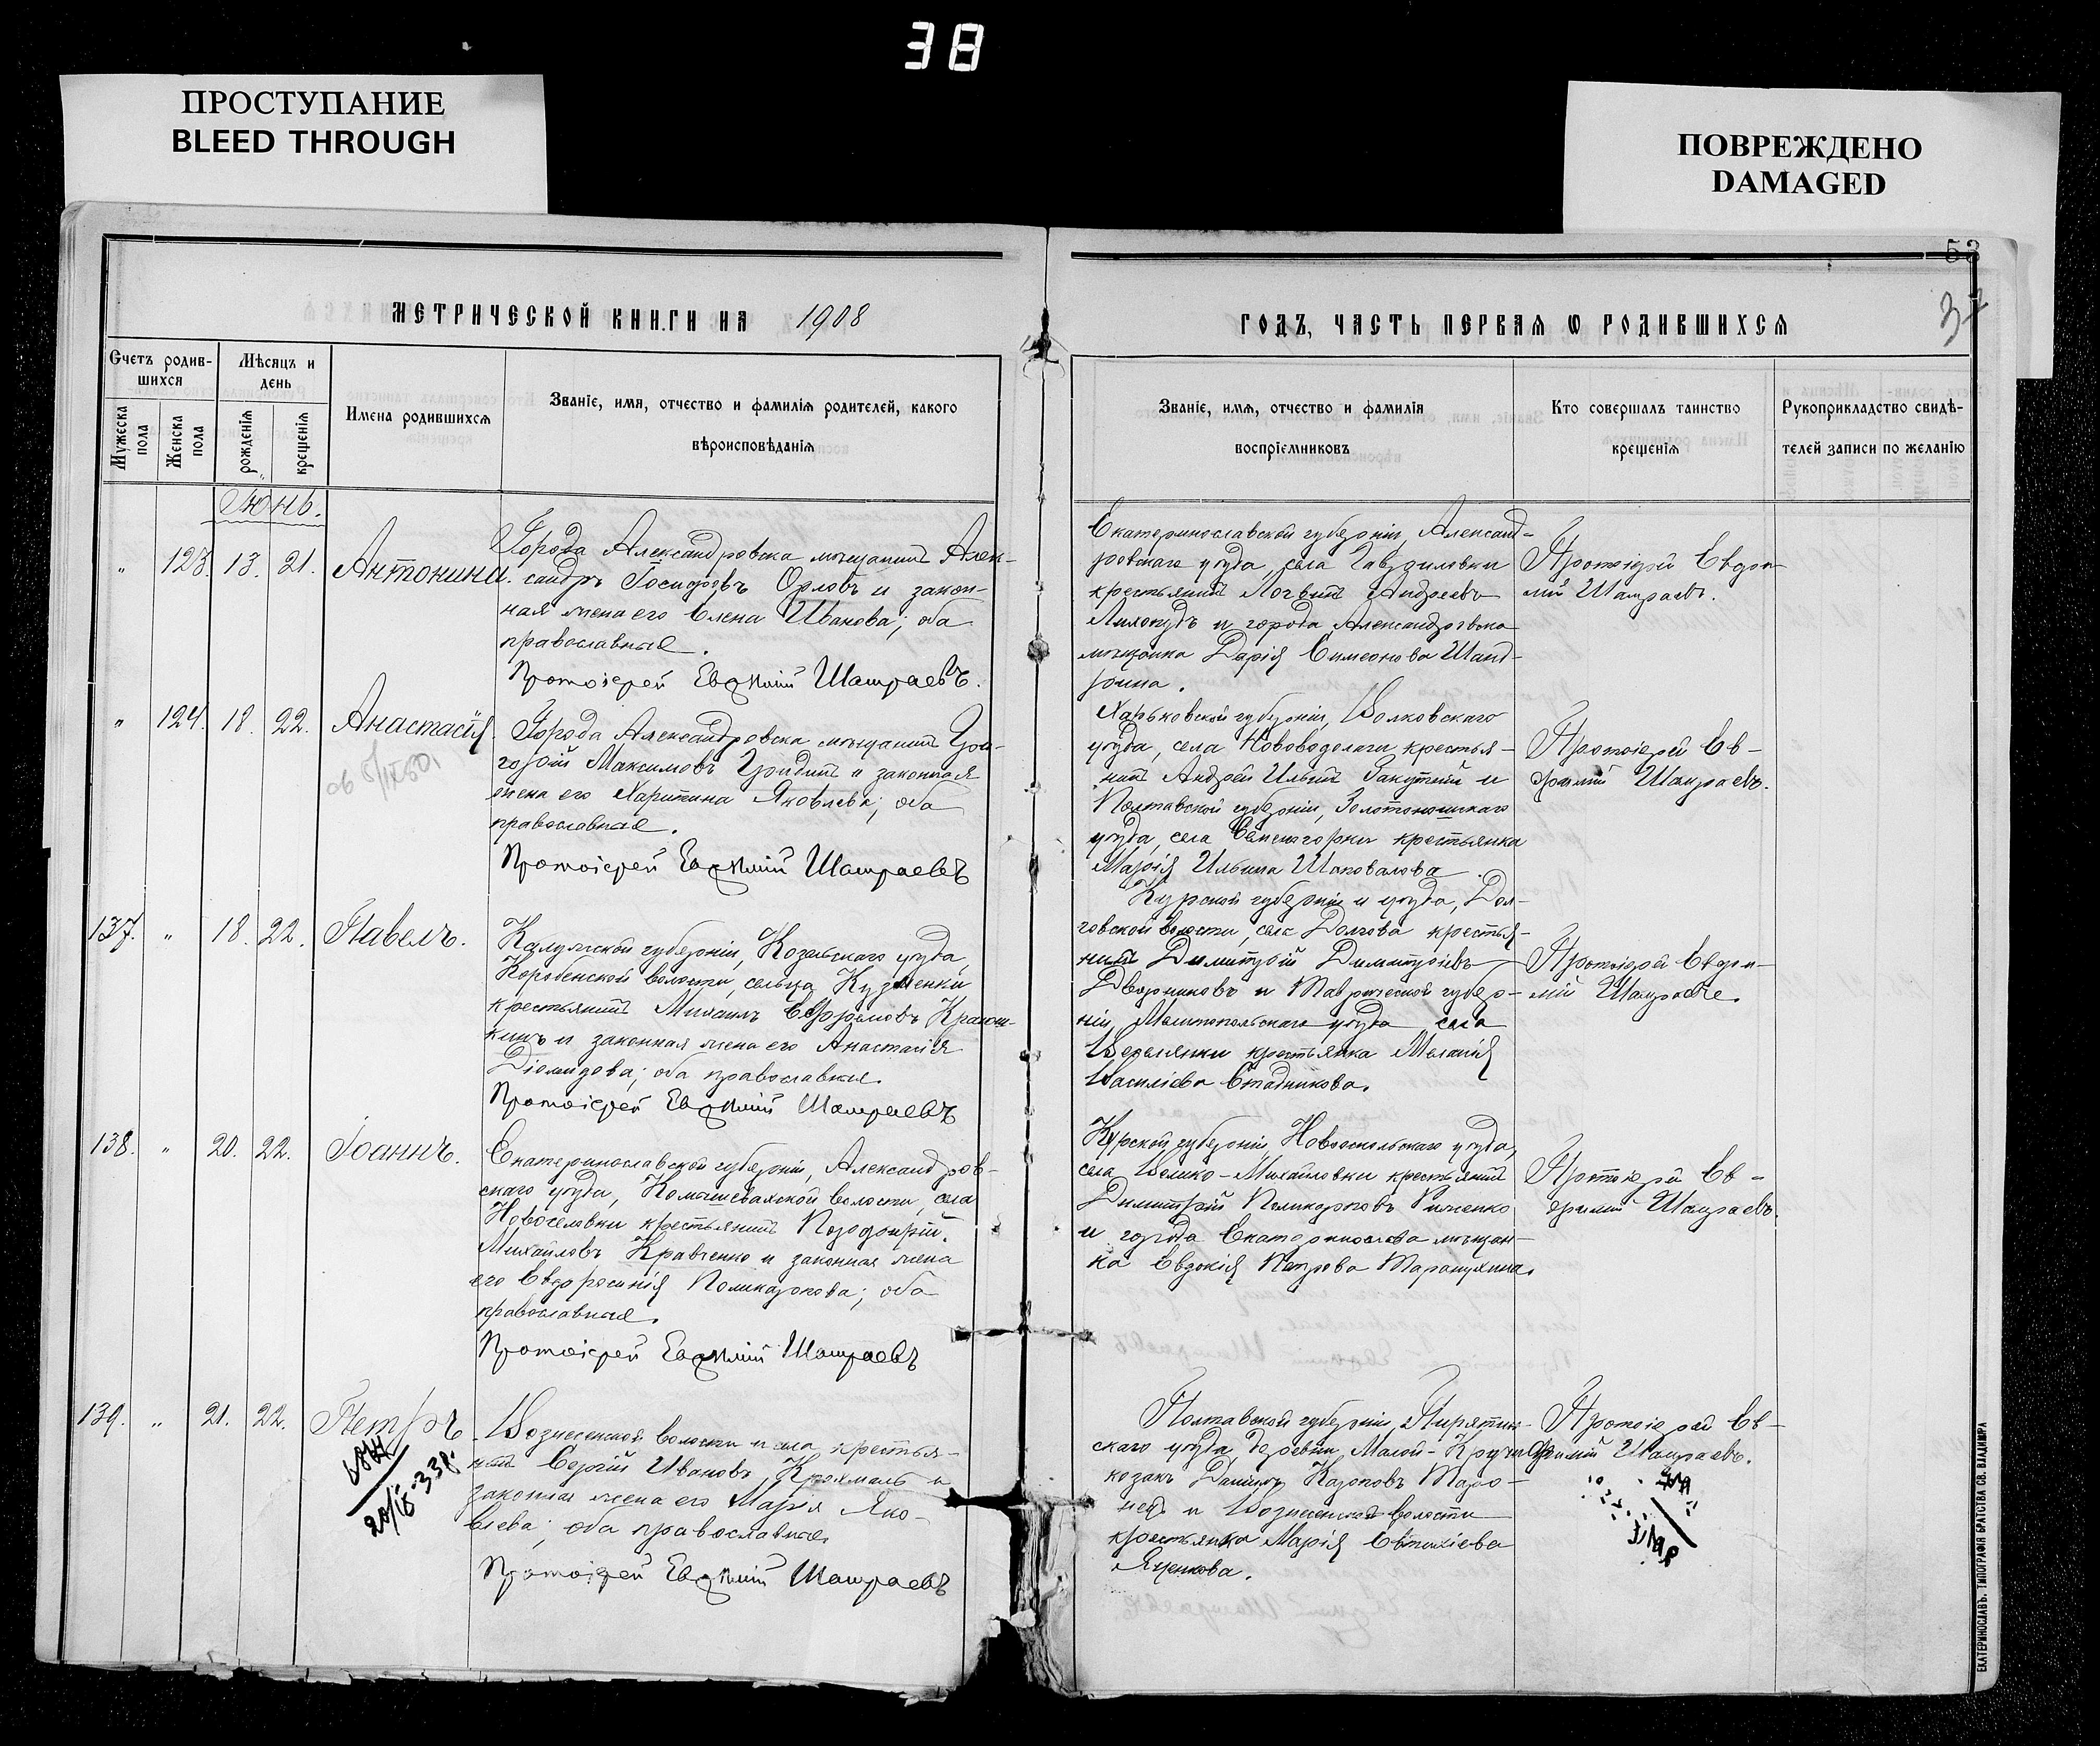 38
ПРОСТУПАНИЕ
BLEED THROUGH
ПОВРЕЖДЕНО
DAMAGED
53
МЕТРИЧЕСКОЙ КНИГИ НА 1908
ГОДЪ, ЧАСТЬ ПЕРВАЯ Ѡ РОДИВШИХСЯ
32
Счетъ родив-
шихся
Мужеска пола
Женска пола
Мѣсяцъ и
день
рожденія
крещенія
Имена родившихся
Званіе, имя, отчество и фамилія родителей, какого
вѣроисповѣданія
Званіе, имя, отчество и фамилія
воспріемниковъ
Кто совершалъ таинство
крещенія
Рукоприкладство свидѣ-
телей записи по желанію
Іюнь.
" 123. 13. 21. Антонина.
Города Александровска мѣщанинъ Алек-
сандръ Іосифовъ Орловъ и закон-
ная жена его Елена Иванова; оба
православные.
Протоіерей Евѳимій Шамраевъ.
Екатеринославской губерніи, Александ-
ровскаго уѣзда, села
крестьянинъ Логвинъ Андреевъ
и города Александровска
мѣщанка Дарія Симеонова
Протоіерей Евѳи-
мій Шамраевъ.
" 124. 18. 22. Анастасія.
Города Александровска мѣщанинъ Гри-
горій Максимовъ Гридинъ и законная
жена его Харитина Яковлева; оба
православные.
Протоіерей Евѳимій Шамраевъ
Харьковской губерніи, Волковскаго
уѣзда, села Нововодолаги крестья-
нинъ Андрей Ильинъ и
Полтавской губерніи, Золотоношскаго
уѣзда, села крестьянка
Марія Ильина Шаповалова.
Протоіерей Ев-
ѳимій Шамраевъ.
137. " 18. 22. Павелъ.
Калужской губерніи, Козельскаго уѣзда,
волости, сельца
крестьянинъ Михаилъ Ефремовъ
и законная жена его Анастасія
Діомидова; оба православные.
Протоіерей Евѳимій Шамраевъ
Курской губерніи и уѣзда, Дол-
говской волости, села Долгова крестья-
нинъ Димитрій Димитріевъ
Дворниковъ и Таврической губер-
ніи, Мелитопольскаго уѣзда села
крестьянка Меланія
Василіева Стадникова.
Протоіерей Евѳи-
мій Шамраевъ.
138. " 20. 22. Іоаннъ.
Екатеринославской губерніи, Александров-
скаго уѣзда, Комышевахской волости, села
Новоселовки крестьянинъ
Михайловъ Кравченко и законная жена
его Евфросинія Поликарпова; оба
православные.
Протоіерей Евѳимій Шамраевъ
Курской губерніи, Новооскольскаго уѣзда,
села Велико-Михайловки крестьянинъ
Димитрій Поликарповъ
и города Екатеринослава мѣщан-
ка Евдокія Петрова
Протоіерей Ев-
ѳимій Шамраевъ.
139. " 21. 22. Петръ.
Вознесенской волости и села крестья-
нинъ Сергій Ивановъ Крохмаль и
законная жена его Марія Яко-
влева; оба православные.
Протоіерей Евѳимій Шамраевъ
Полтавской губерніи, Пирятин-
скаго уѣзда, деревни Малой-
козакъ Даніилъ Карповъ
и Вознесенской волости
крестьянка Марія Евтихіева
Яценкова.
Протоіерей Ев-
ѳимій Шамраевъ.
ЕКАТЕРИНОСЛАВЪ. ТИПОГРАФІЯ БРАТСТВА СВ. ВЛАДИМІРА